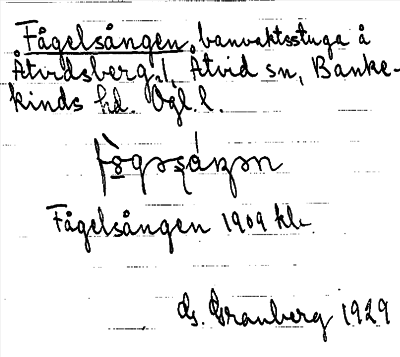 Fågelsången, banvaktsstuga å
Åtvidsberg 1, Åtvid sn, Banke-
kinds hd. Ögl l.
Fågelsången 1909 kl.
Gs. Granberg 1929